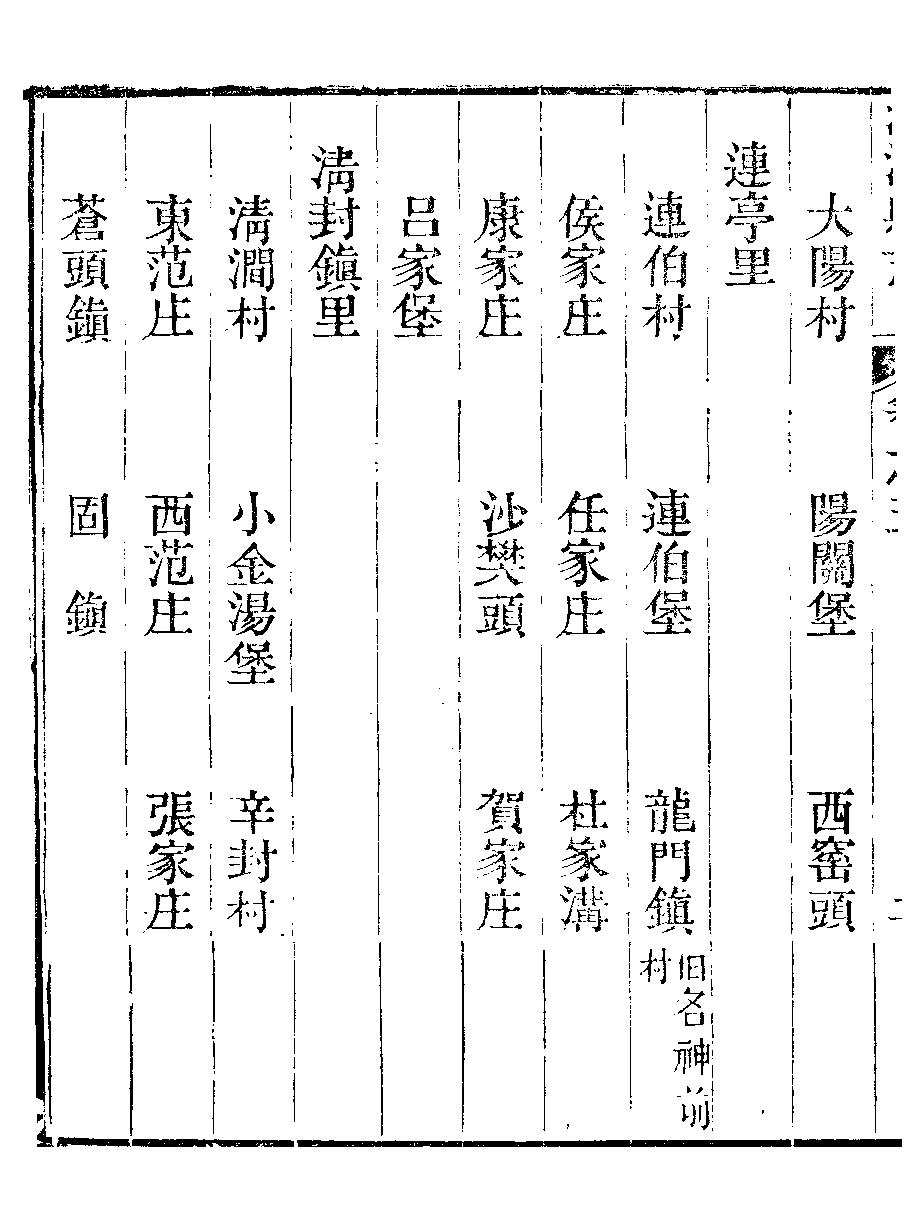 大陽村　陽關堡　西窑頭
連亭里
連伯村　連伯堡　龍門鎮　旧名神前村
侯家庄　任家庄　杜家溝
康家庄　沙樊頭　賀家庄
呂家堡
清封鎮里
清澗村　小金湯堡　辛封村
東范庄　西范庄　張家庄
蒼頭鎮　固鎮